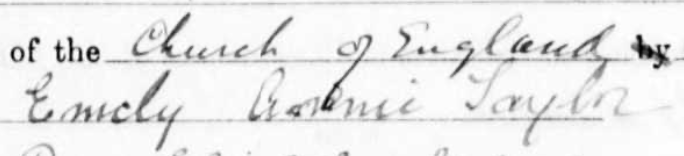 of the Church of England by
Emely Annie Taylor